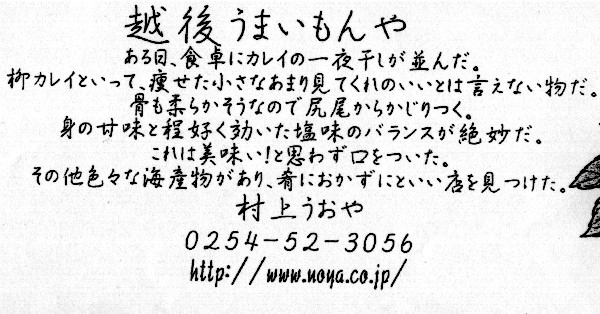 越後うまいもんや
ある日、食卓にカレイの一夜干しが並んだ。
柳カレイといって、痩せた小さなあまり見てくれのいいとは言えない物だ。
骨も柔らかそうなので尻尾からかじりつく。
身の甘味と程好く効いた塩味のバランスが絶妙だ。
これは美味い!と思わず口をついた。
その他色々な海産物があり、肴におかずにといい店を見つけた。
村上うおや
0254-52-3056
http://www.uoya.co.jp/